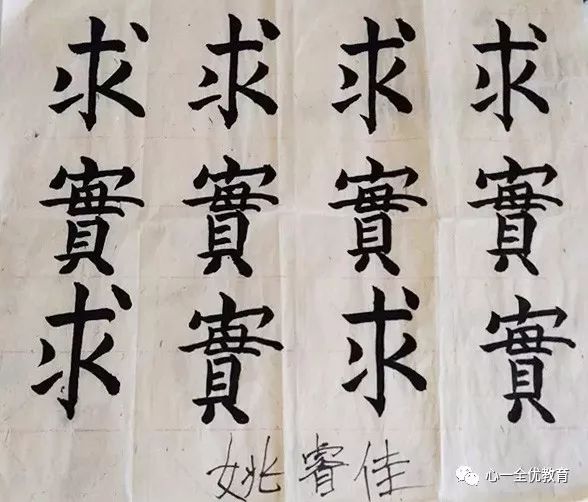 求求求求
實實實實
求實求實
姚睿佳
心一全优教育